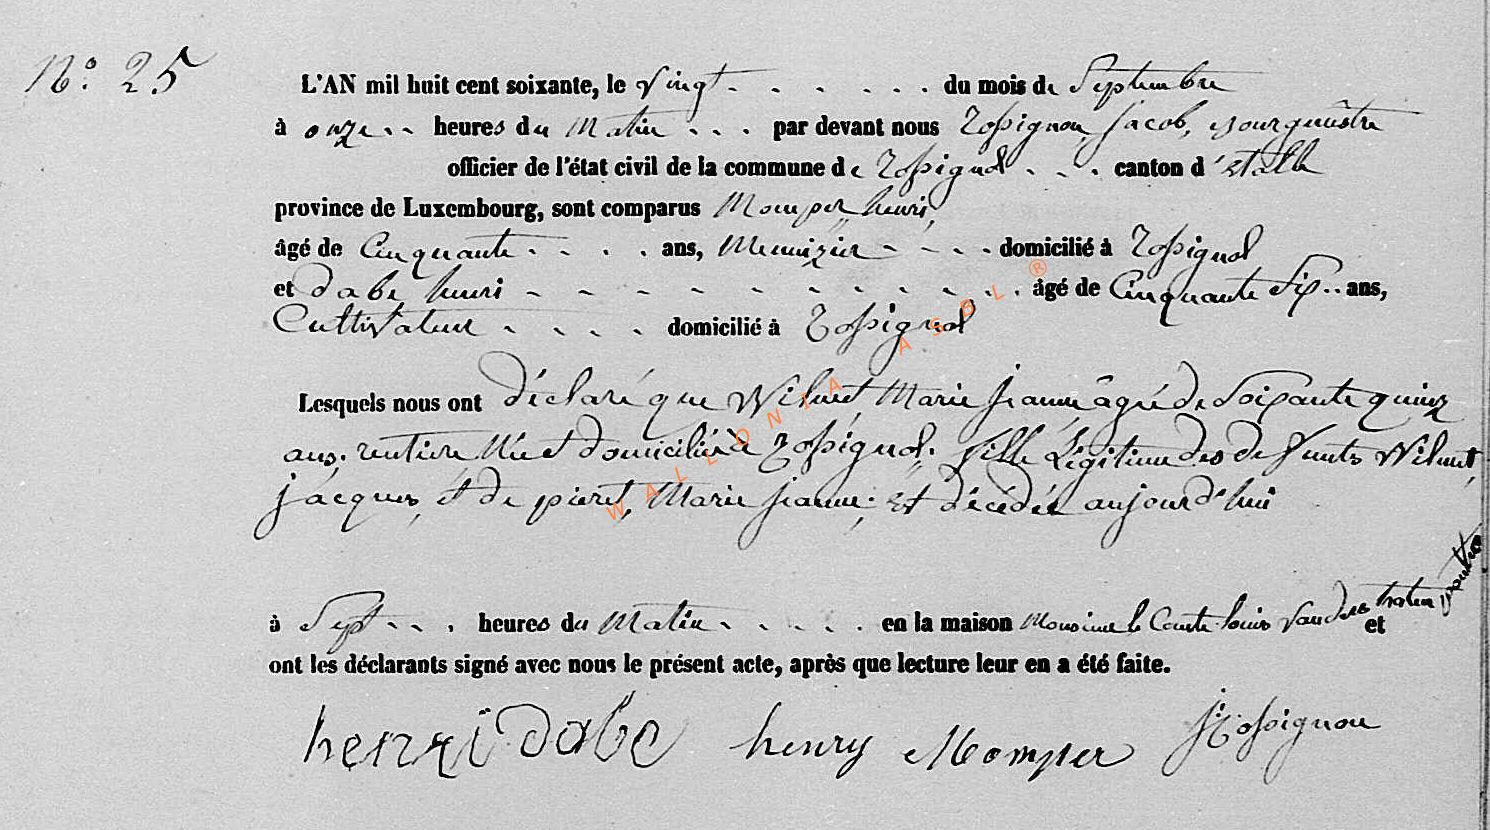 N.° 25
L'AN mil huit cent soixante, le vingt - - - - - - du mois de Septembre
à onze - - heures du Matin - - - par devant nous Rossignon, Jacob, Bourguêstre
officier de l'état civil de la commune de Rossignol - - - canton d'Etalle
province de Luxembourg, sont comparus Momper, henri,
âgé de Cinquante - - - - ans, Menuizier - - - - domicilié à Rossignol
et dabe, henri - - - - - - - - - - - - - âgé de Cinquante Six - - ans,
Cultivateur - - - - domicilié à Rossignol
Lesquels nous ont déclaré que Wilmet, Marie Jeanne, âgée de Soixante quinze
ans, rentière Née et domiciliée à Rossignol, fille Légitime des defunts Wilmet,
jacques, et de pieret, Marie jeanne; et décédée aujourd'hui
à Sept - - - heures du Matin - - - - - en la maison Monsieur le Comte louis Vanderstraten ponthoz et
ont les déclarants signé avec nous le présent acte, après que lecture leur en a été faite.
henri dabe henry Momper J. Rossignon
WALLONIA ASBL ®